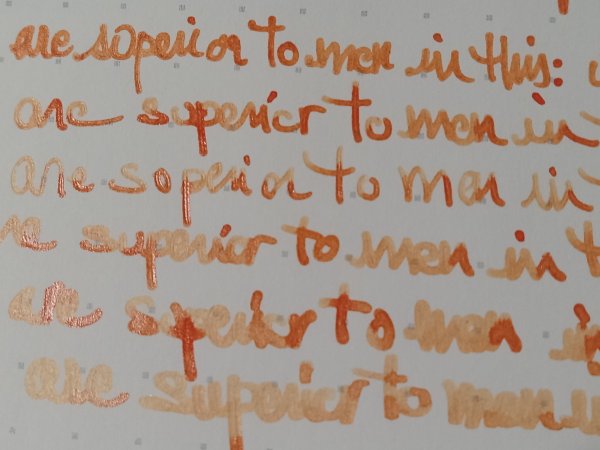 are soperior to men in this:
are superior to men in
are soperior to men in
superior to men in
are superior to men
are superior to men